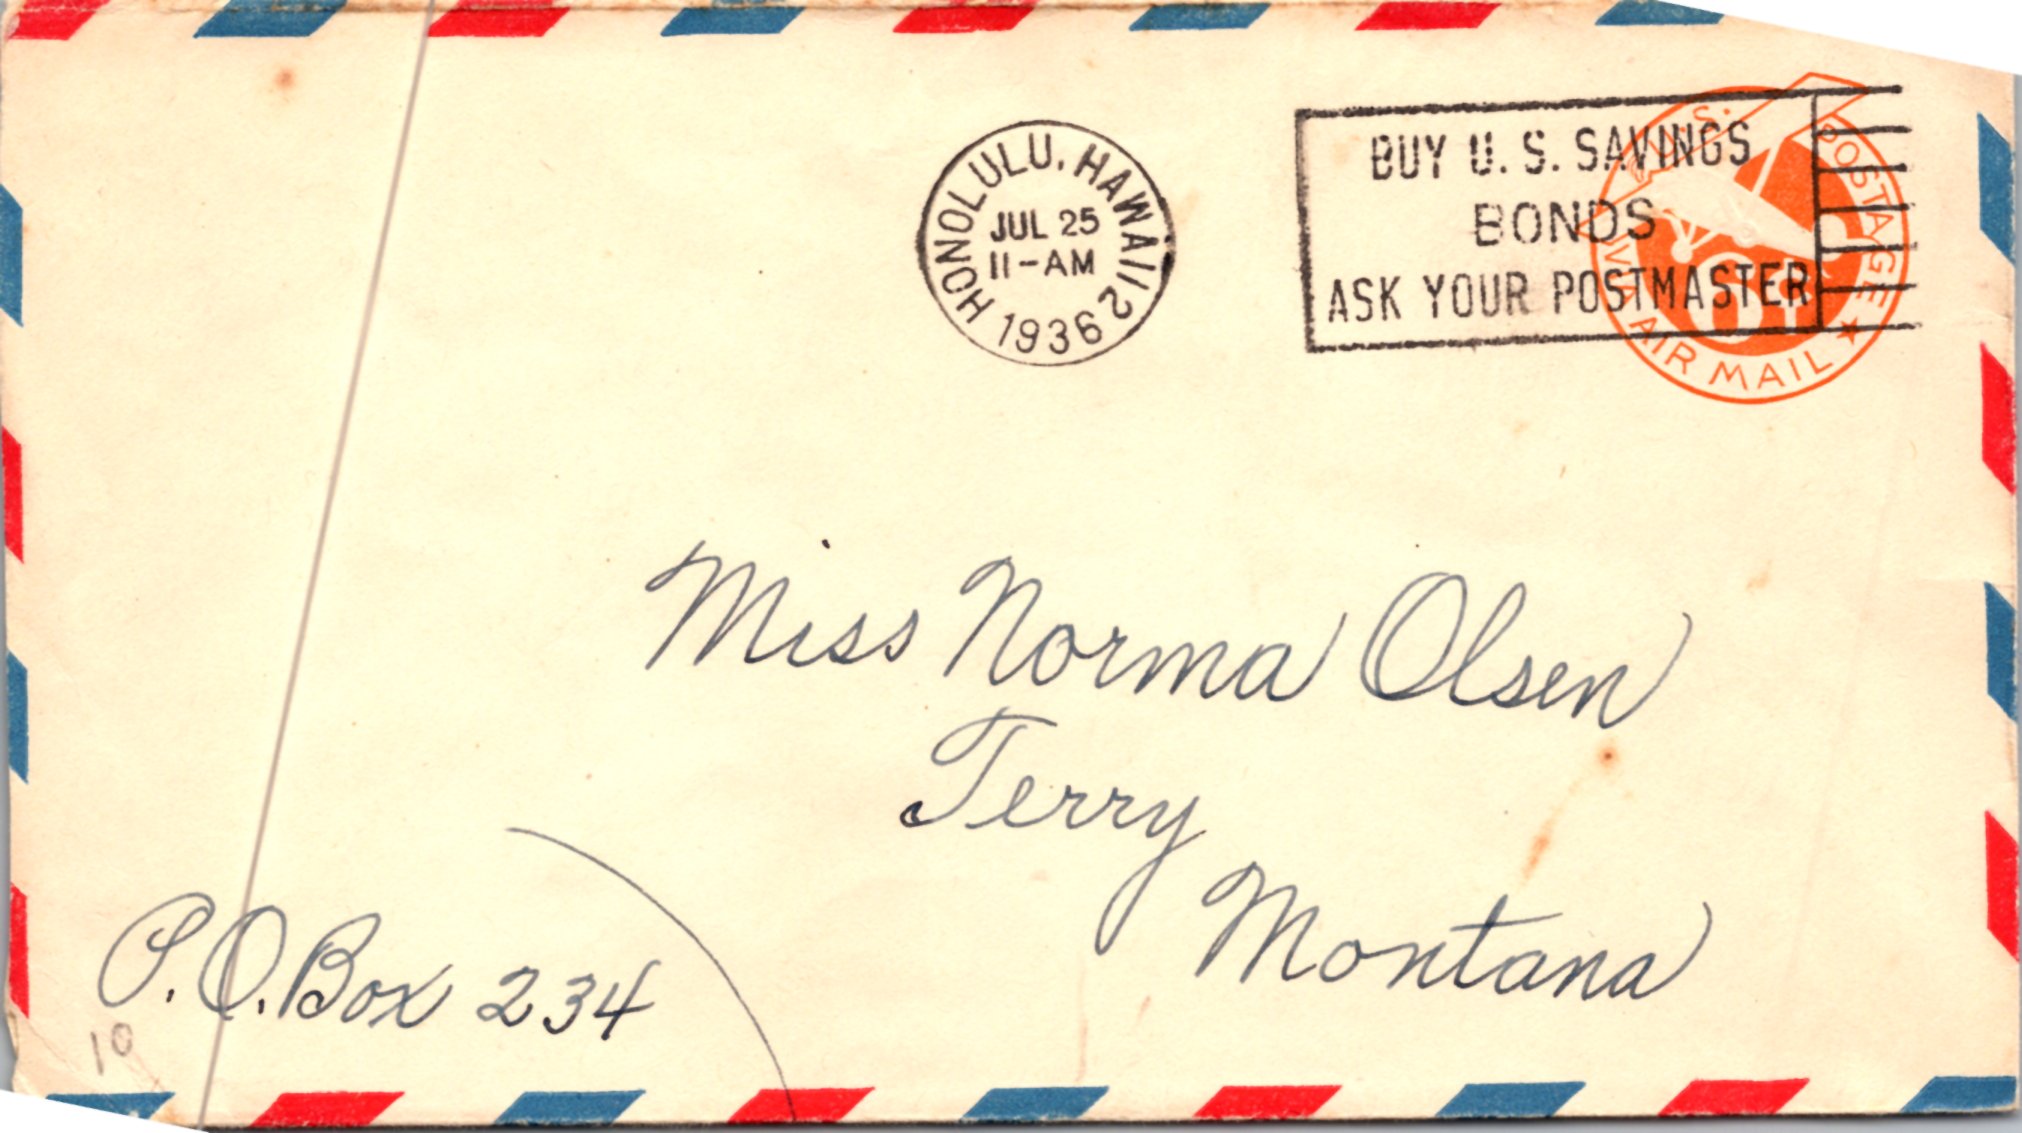 HONOLULU, HAWAII 2
JUL 25
11-AM
1936
BUY U. S. SAVINGS
BONDS
ASK YOUR POSTMASTER
U.S. POSTAGE
6¢
VIA AIR MAIL
Miss Norma Olsen
Terry
Montana
P.O. Box 234
10